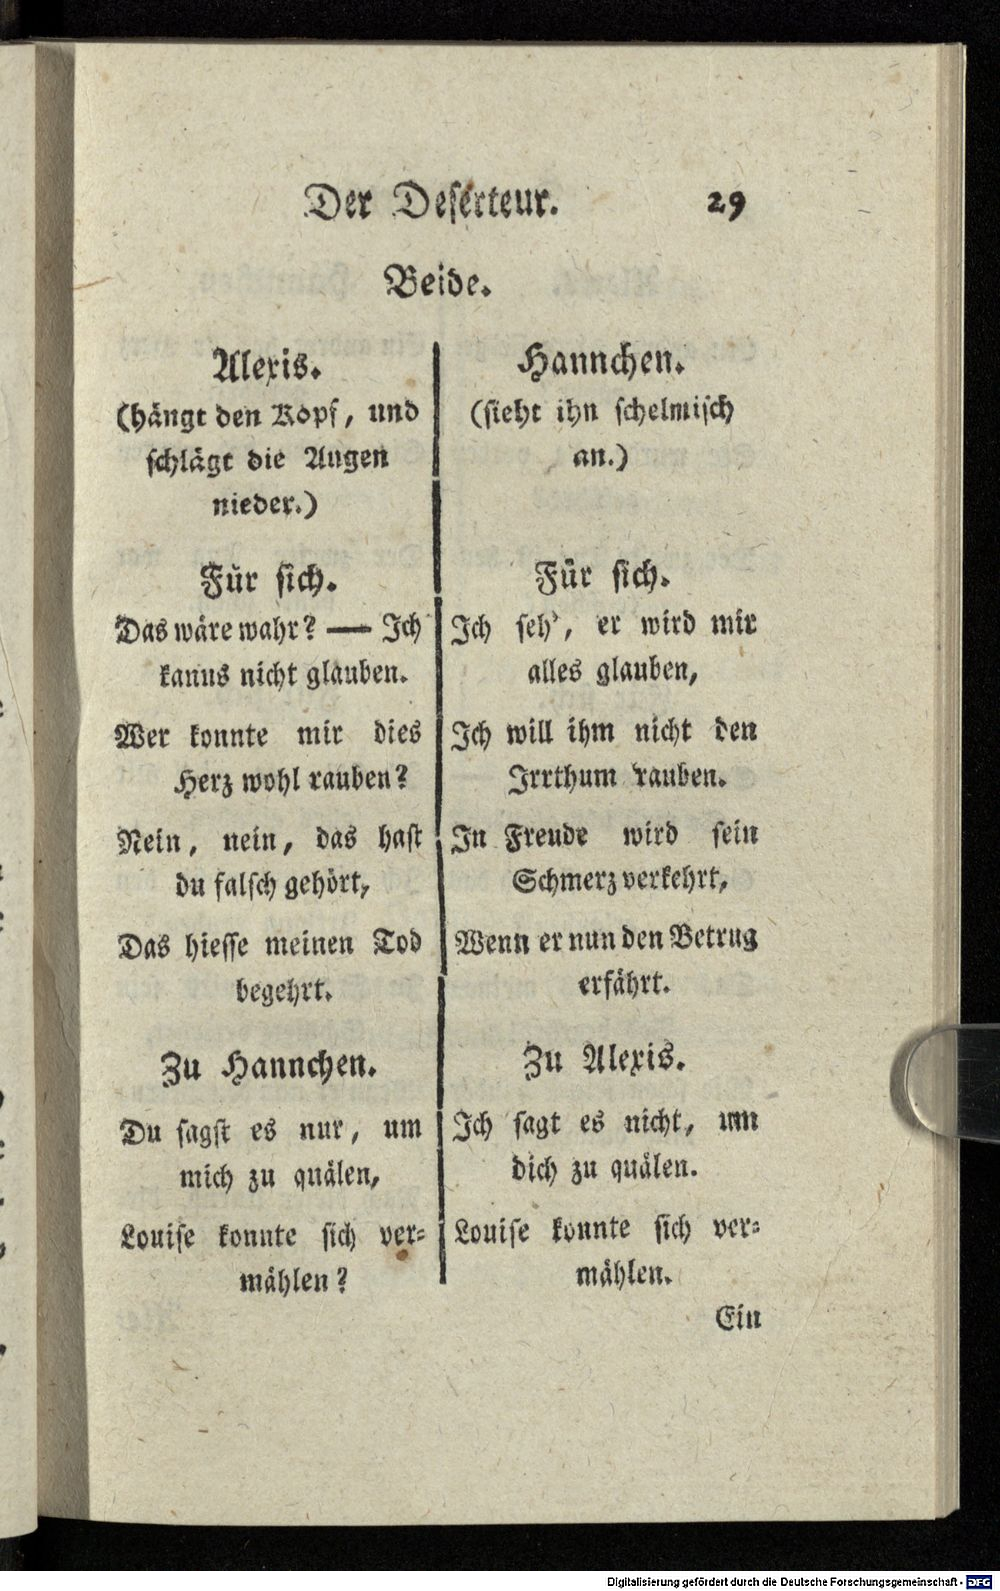 Der Deserteur. 29
Beide.
Alexis.
(hängt den Kopf, und
schlägt die Augen
nieder.)
Für sich.
Das wäre wahr? — Ich
kanns nicht glauben.
Wer konnte mir dies
Herz wohl rauben?
Nein, nein, das hast
du falsch gehört,
Das hiesse meinen Tod
begehrt.
Zu Hannchen.
Du sagst es nur, um
mich zu quälen,
Louise konnte sich ver-
mählen?
Hannchen.
(sieht ihn schelmisch
an.)
Für sich.
Ich seh', er wird mir
alles glauben,
Ich will ihm nicht den
Irrthum rauben.
In Freude wird sein
Schmerz verkehrt,
Wenn er nun den Betrug
erfährt.
Zu Alexis.
Ich sagt es nicht, um
dich zu quälen.
Louise konnte sich ver-
mählen.
Ein
Digitalisierung gefördert durch die Deutsche Forschungsgemeinschaft - DFG